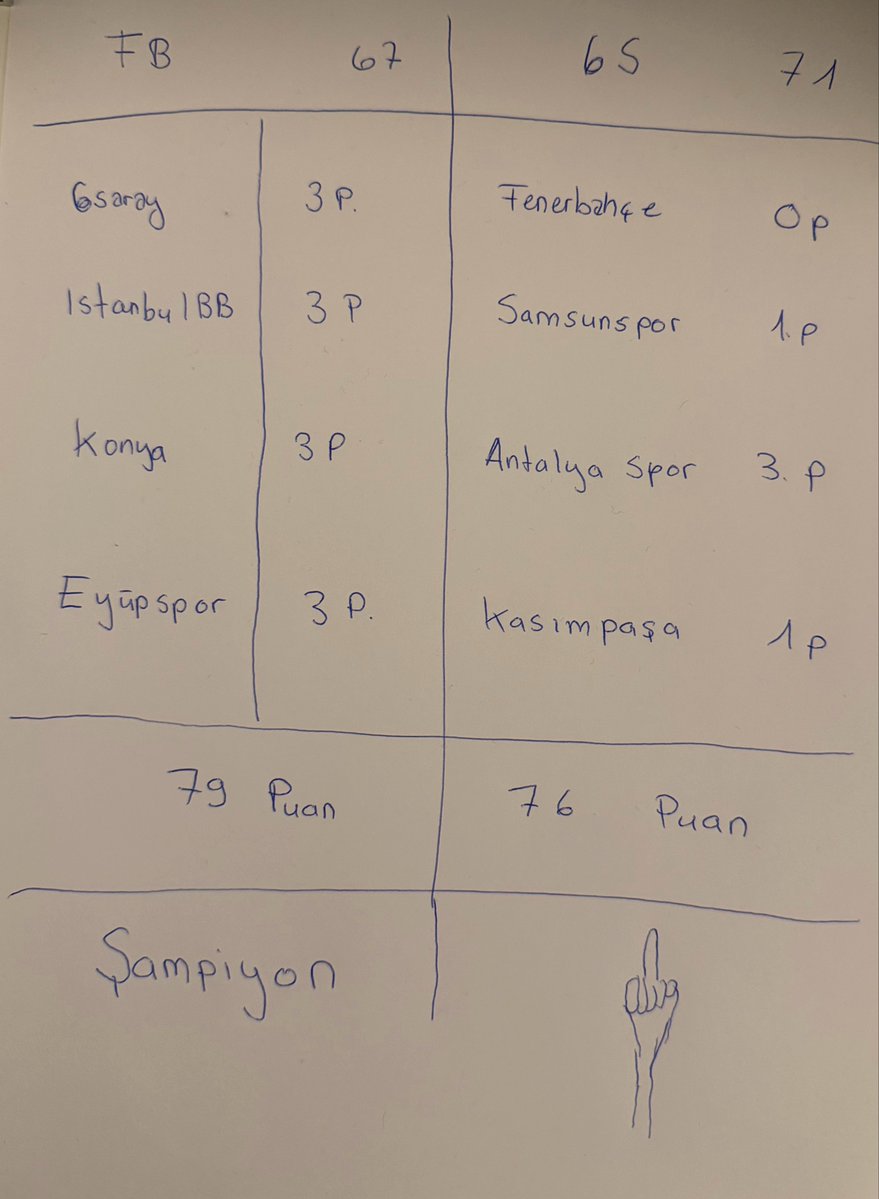 FB 67 GS 71
Gsaray 3 P. Fenerbahçe 0 p
Istanbul BB 3 P Samsunspor 1.p
Konya 3 P Antalya spor 3. p
Eyüpspor 3 P. Kasımpaşa 1 p
79 Puan 76 Puan
Şampiyon